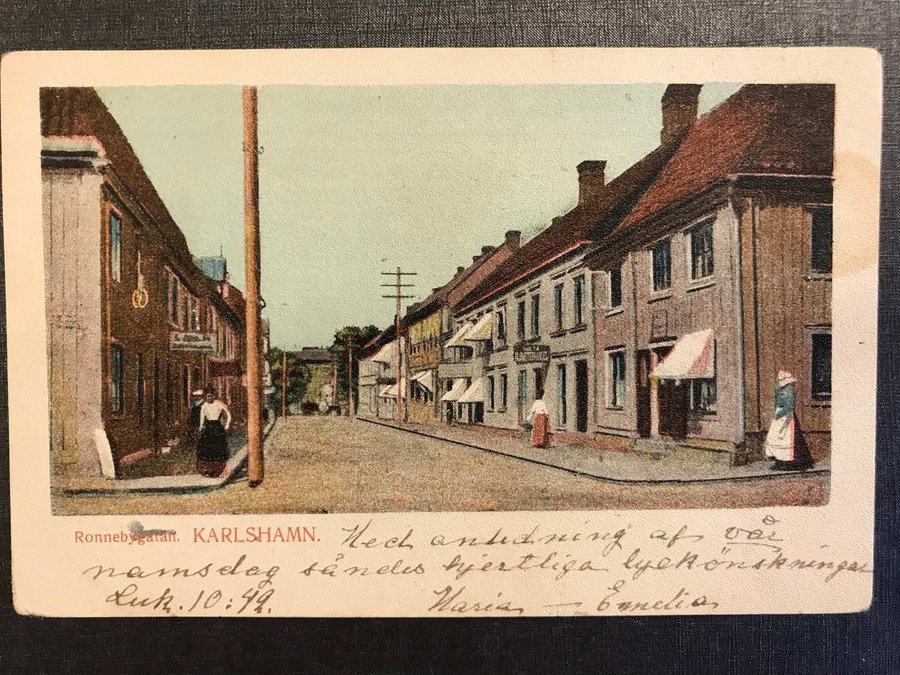 Ronnebygatan. KARLSHAMN. Med anledning af vår
namsdag såndes hjertliga lyckönskningar
Luk. 10:42. Maria — Emelia